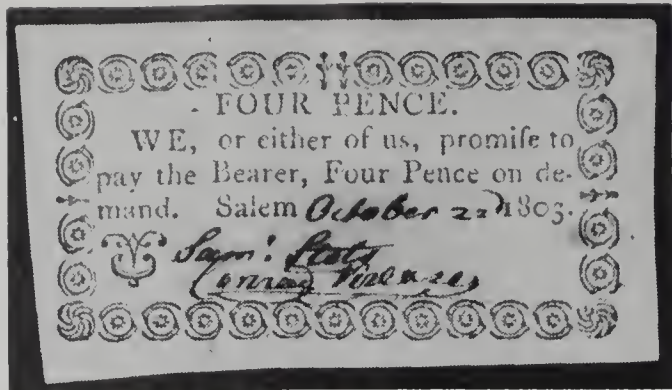 FOUR PENCE.
WE, or either of us, promiſe to
pay the Bearer, Four Pence on de-
mand. Salem October 22d 1803.
Sam:
Conrad